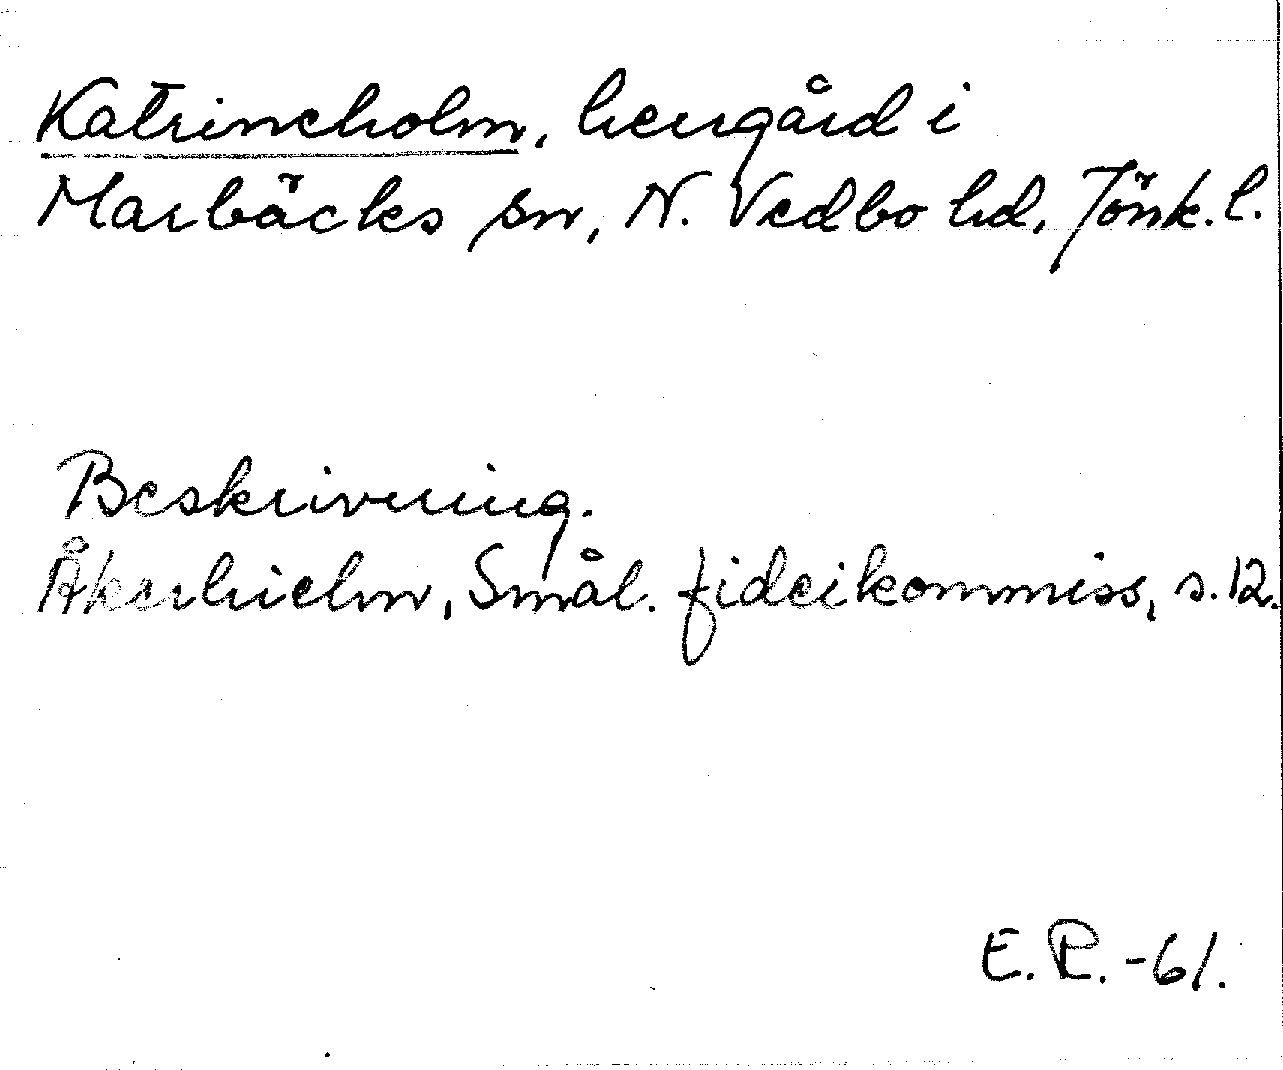 Katrineholm, herrgård i
Marbäcks sn, N. Vedbo hd, Jönk. l.
Beskrivning.
Åkerhielm, Smål. fideikommiss, s. 12.
E. R. -61.